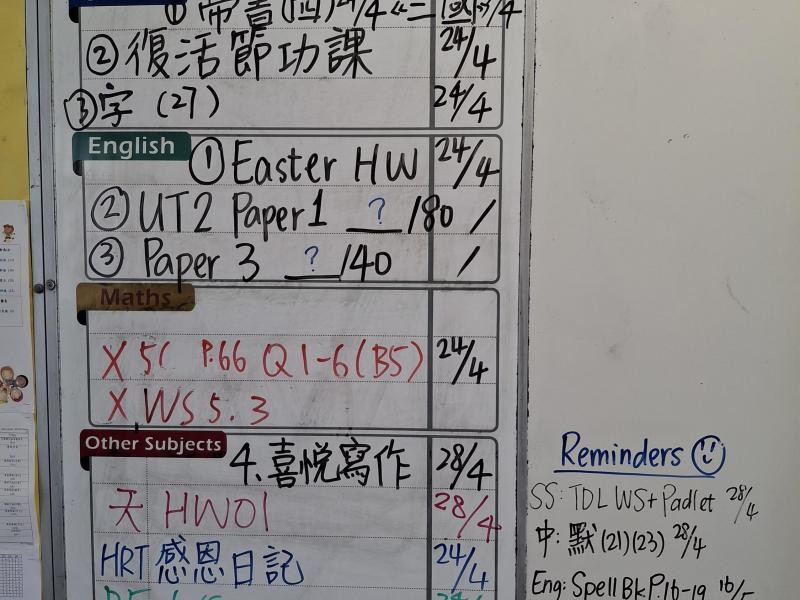 ② 復活節功課 24/4
③ 字 (27) 24/4
English
① Easter HW 24/4
② UT2 Paper 1 ? /80 /
③ Paper 3 ? /40 /
Maths
X 5C P.66 Q1-6 (B5) 24/4
X WS 5.3
Other Subjects
4. 喜悅寫作 28/4
天 HW01 28/4
HRT 感恩日記 24/4
Reminders
SS: TDL WS + Padlet 28/4
中: 默 (21)(23) 28/4
Eng: Spell Bk P.16-19